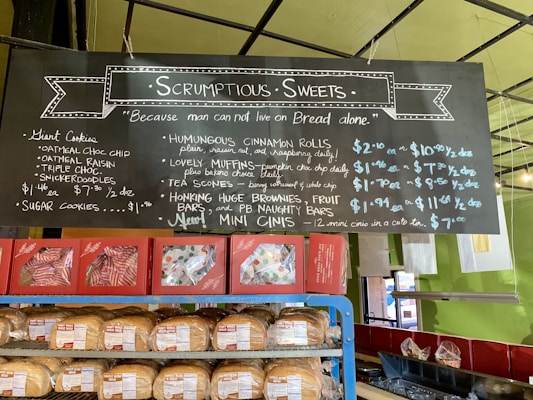 Scrumptious Sweets
"Because man can not live on Bread alone."
Giant Cookies
OATMEAL CHOC CHIP
OATMEAL RAISIN
TRIPLE CHOC.
SNICKERDOODLES
$1.46 ea $7.30 ½ dz
SUGAR COOKIES .... $1.96
HUMUNGOUS CINNAMON ROLLS $2.10 ea $10.90 ½ dz
plain, raisin nut, and raspberry daily!
LOVELY MUFFINS—pumpkin choc chip daily $1.46 ea $7.30 ½ dz
plus bakers choice daily
TEA SCONES — berry w/ white chip $1.70 ea $8.50 ½ dz
HONKING HUGE BROWNIES, FRUIT $1.94 ea $11.64 ½ dz
BARS, and P.B. NAUGHTY BARS
New! MINI CINIS — 12 mini cinis in a cute tin. $7.00